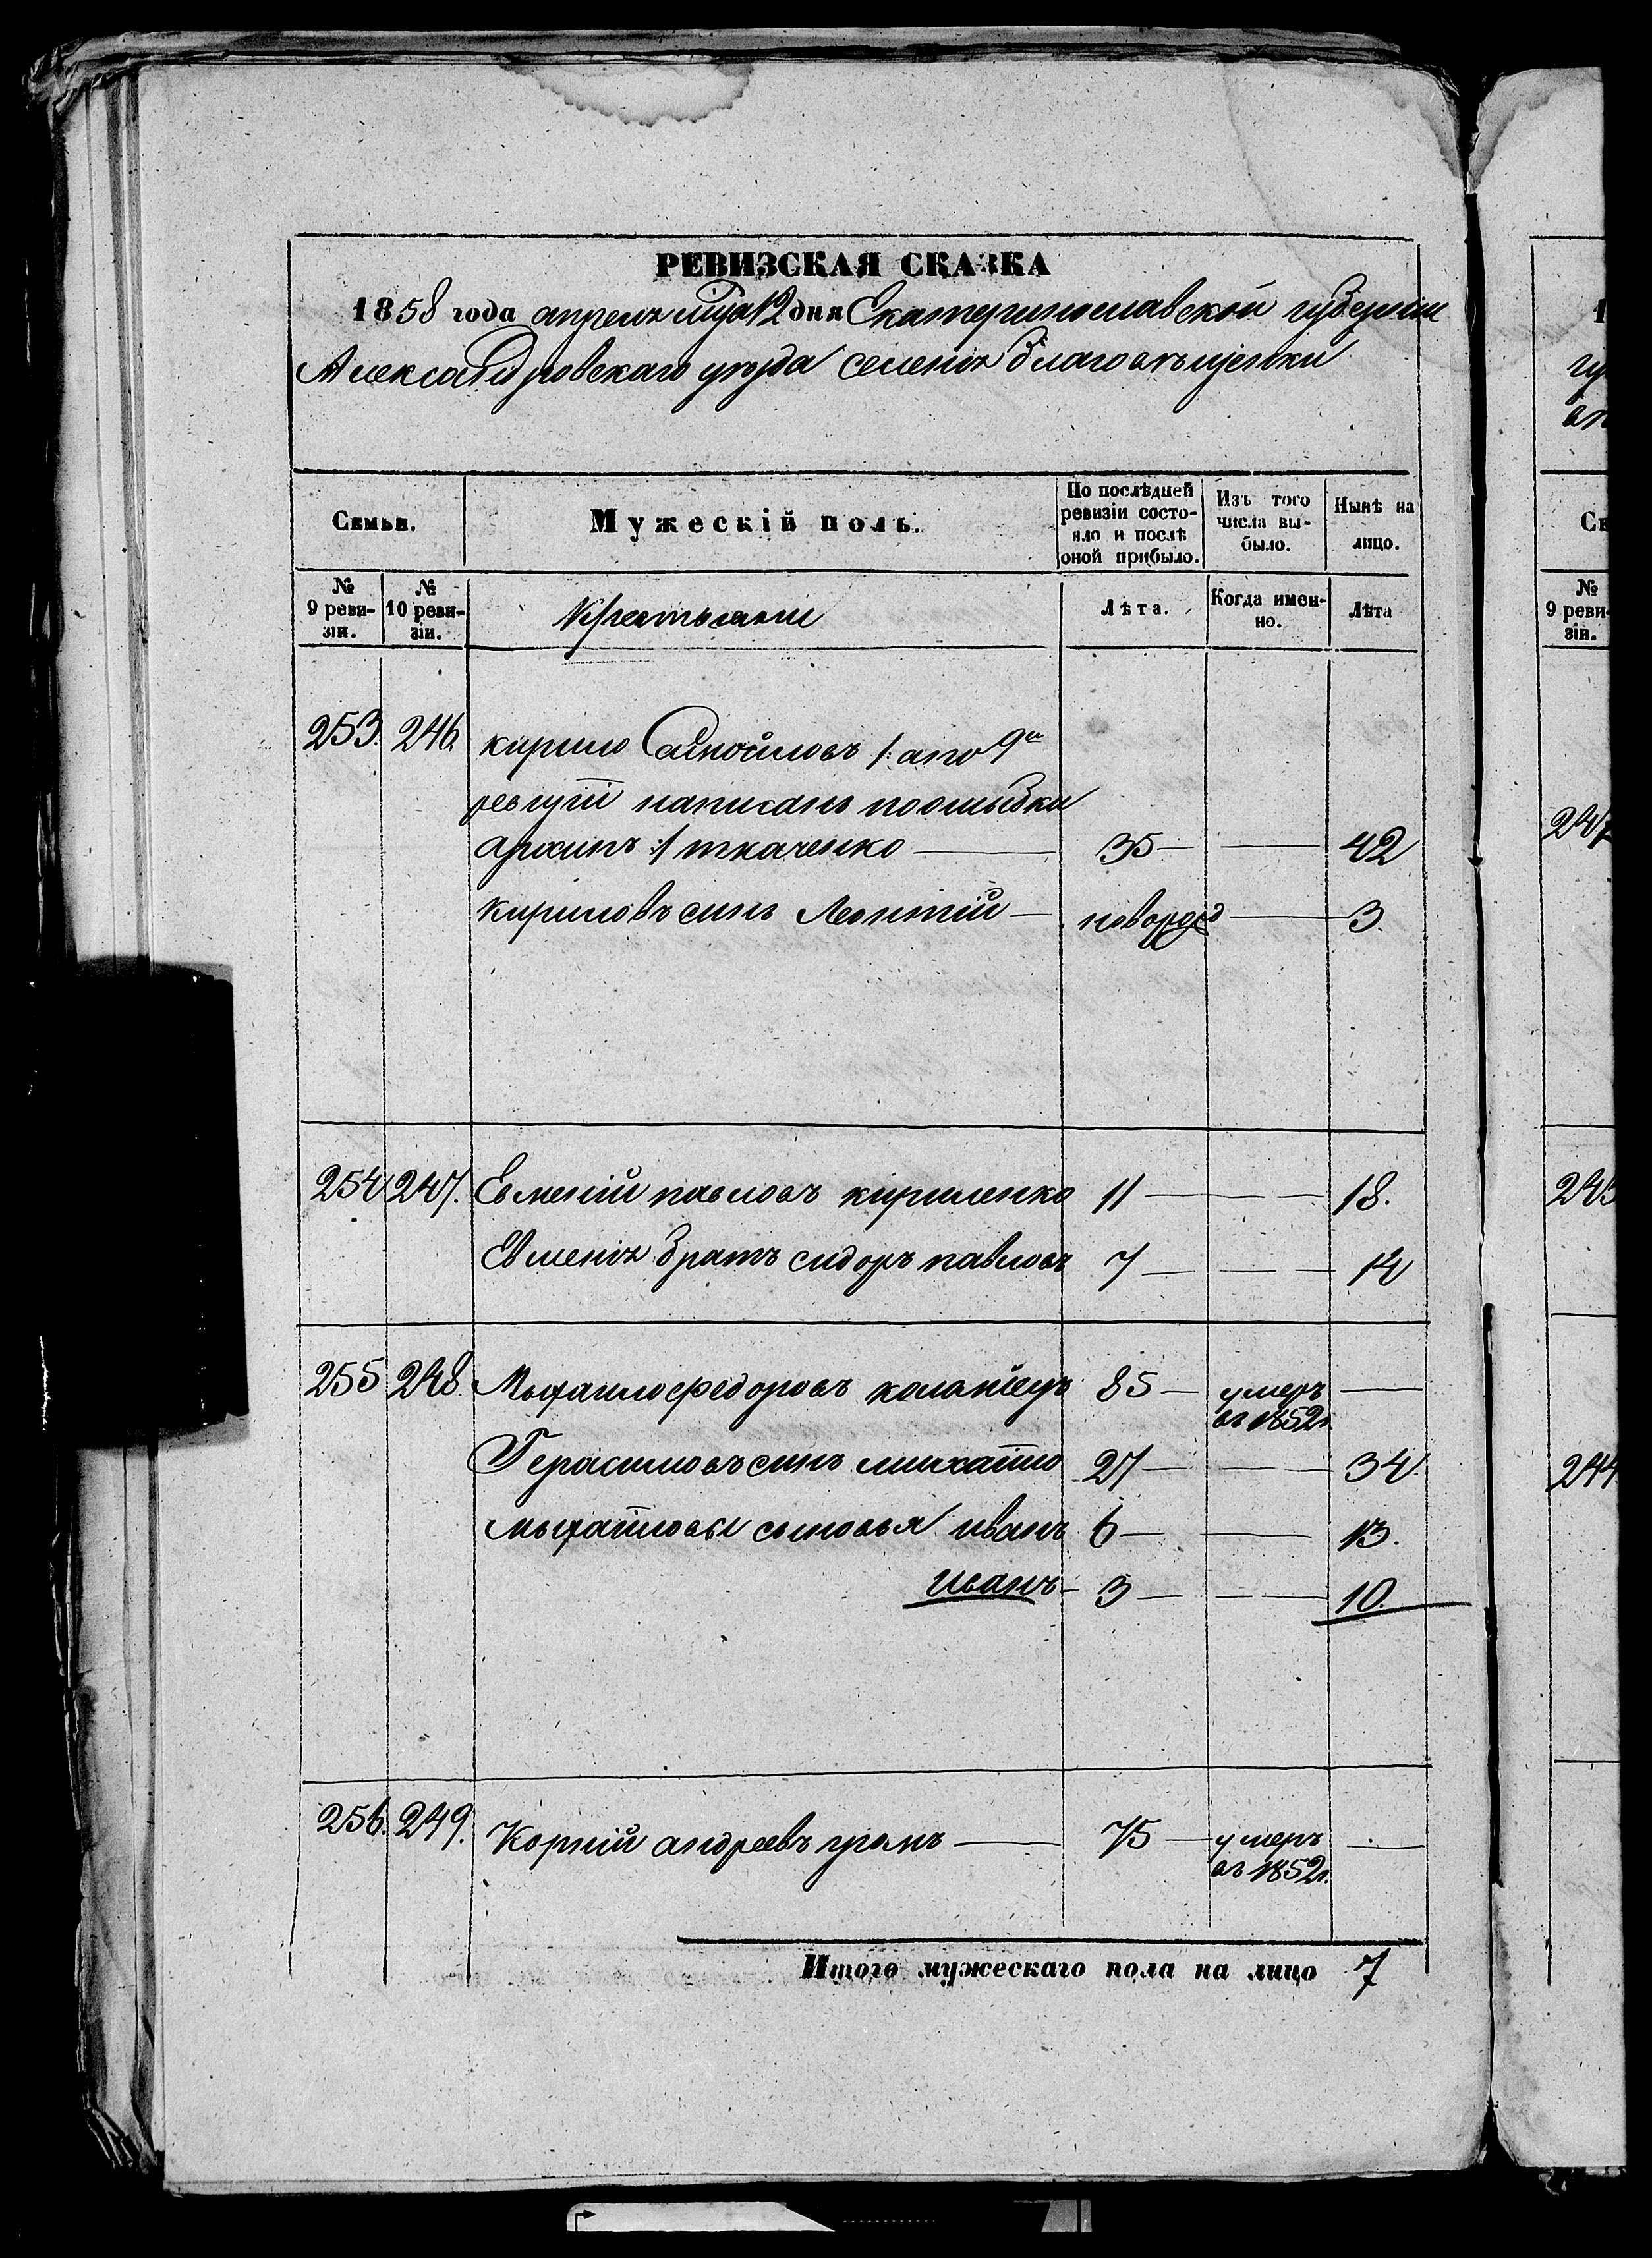 РЕВИЗСКАЯ СКАЗКА
1858 года апреля мца 12 дня Екатеринославской губернии
Александровскаго уезда селения благовъщенки
Семьи.
Мужескій полъ.
По послѣдней ревизіи состояло и послѣ оной прибыло.
Изъ того числа выбыло.
Нынѣ на лицо.
№ 9 ревизіи.
№ 10 ревизіи.
Крестьяни
Лѣта.
Когда именно.
Лѣта
253. 246. кирило Самойловъ /: а по 9й
ревизіи написанъ поошыбки
архипъ :/ ткаченко 35 42
кириловъ синъ Леонтій новорожд 3.
254 247. Евменій павловъ кириленко 11 18.
Евменія братъ сидоръ павловъ 7 14
255 248. Мыхаило федоровъ 85 умеръ въ 1852г.
Герасимовъ синъ михаило 27 34.
мыхаиловы сыновья иванъ 6 13.
иванъ 3 10.
256. 249. Корній андреевъ 75 умеръ въ 1852г.
Итого мужескаго пола на лицо 7
1
гу
Се
№
9 реви-
зіи.